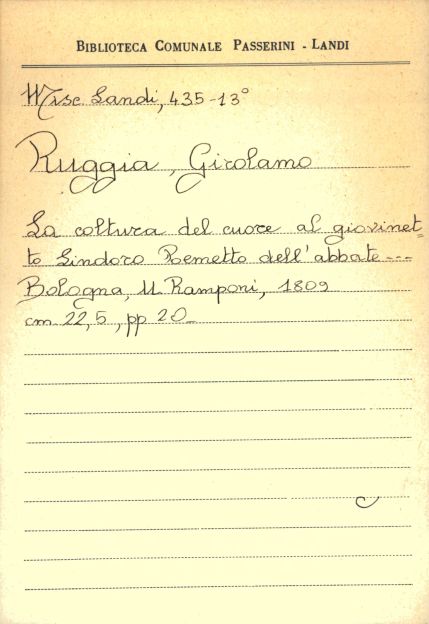 BIBLIOTECA COMUNALE PASSERINI - LANDI
Misc. Landi, 435-13°
Ruggia, Girolamo
La coltura del cuore al giovinet=
to Lindoro Poemetto dell'abbate ---
Bologna, U. Ramponi, 1809
cm. 22,5, pp 20_